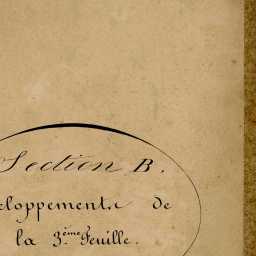 Section B.
eloppements de
la 3.ème Feuille.